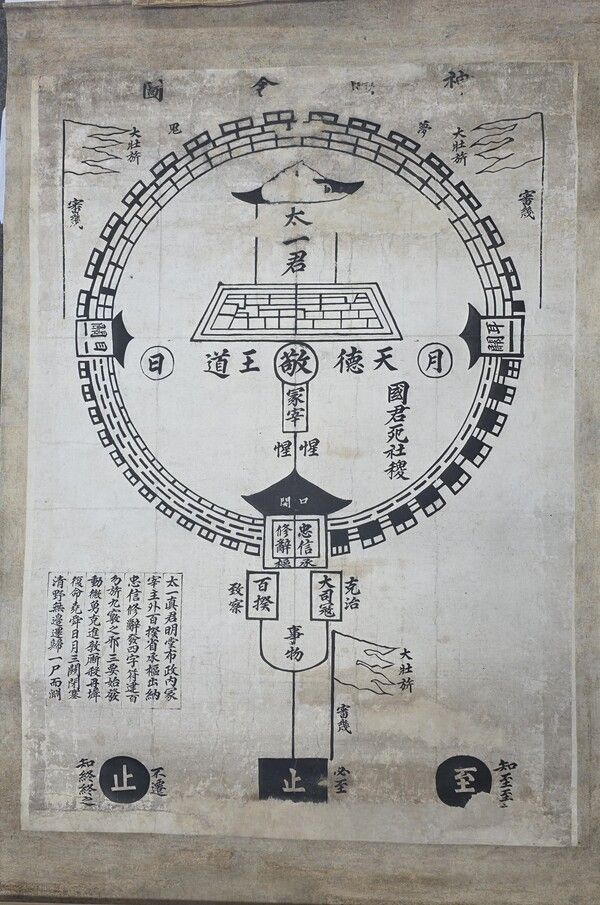 神
圖
夢
鬼
大壯旂
審幾
大壯旂
審幾
太一君
耳關
目關
月
天德
敬
王道
日
國君死社稷
冢宰
惺惺
口關
忠信
修辭
承樞
大司寇
克治
百揆
致察
事物
大壯旂
審幾
太一眞君明堂布政內冢
宰主外百揆省承樞出納
忠信修辭發四字符建百
勿旂九竅之邪三要始發
動微勇克進教厮殺丹墀
復命堯舜日月三關閉塞
清野無邊還歸一尸而淵
知至至之
至
必至
止
不遷
止
知終終之